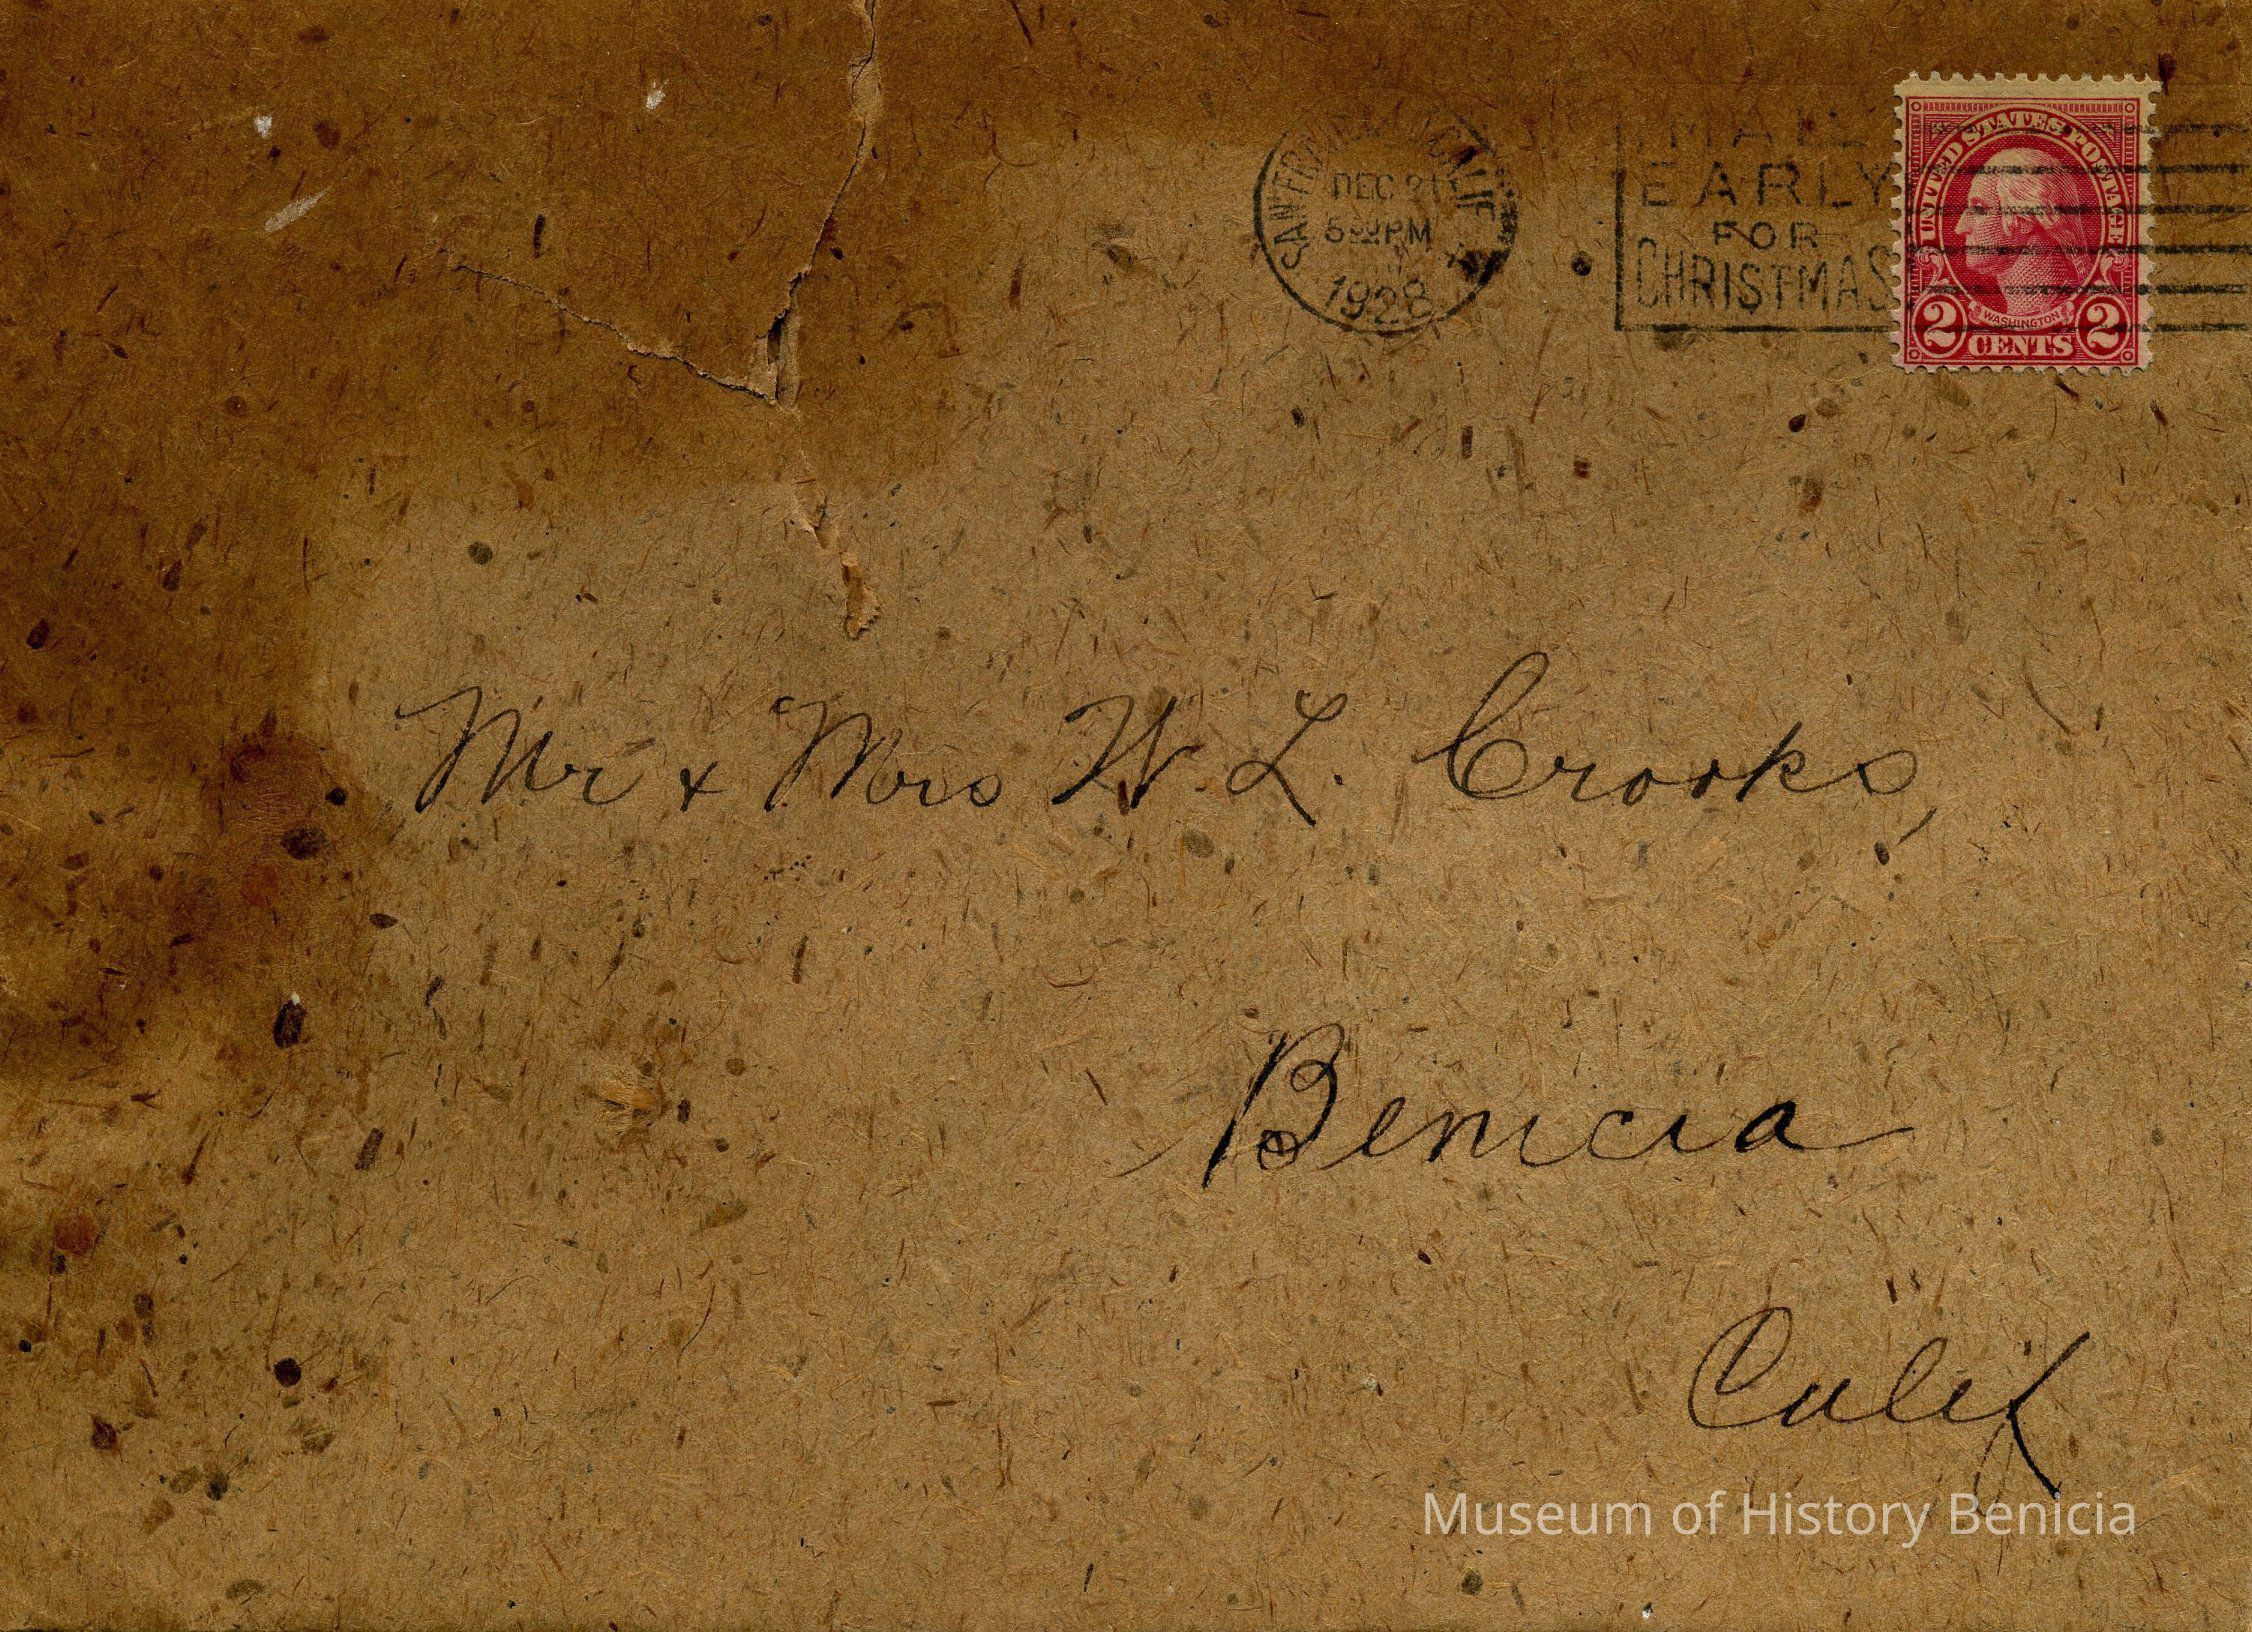 SAN FRANCISCO, CALIF.
DEC 21
5 00 PM
1928
MAIL
EARLY
FOR
CHRISTMAS
UNITED STATES POSTAGE
WASHINGTON
2 CENTS 2
Mr & Mrs W. L. Crooks,
Benicia
Calif
Museum of History Benicia